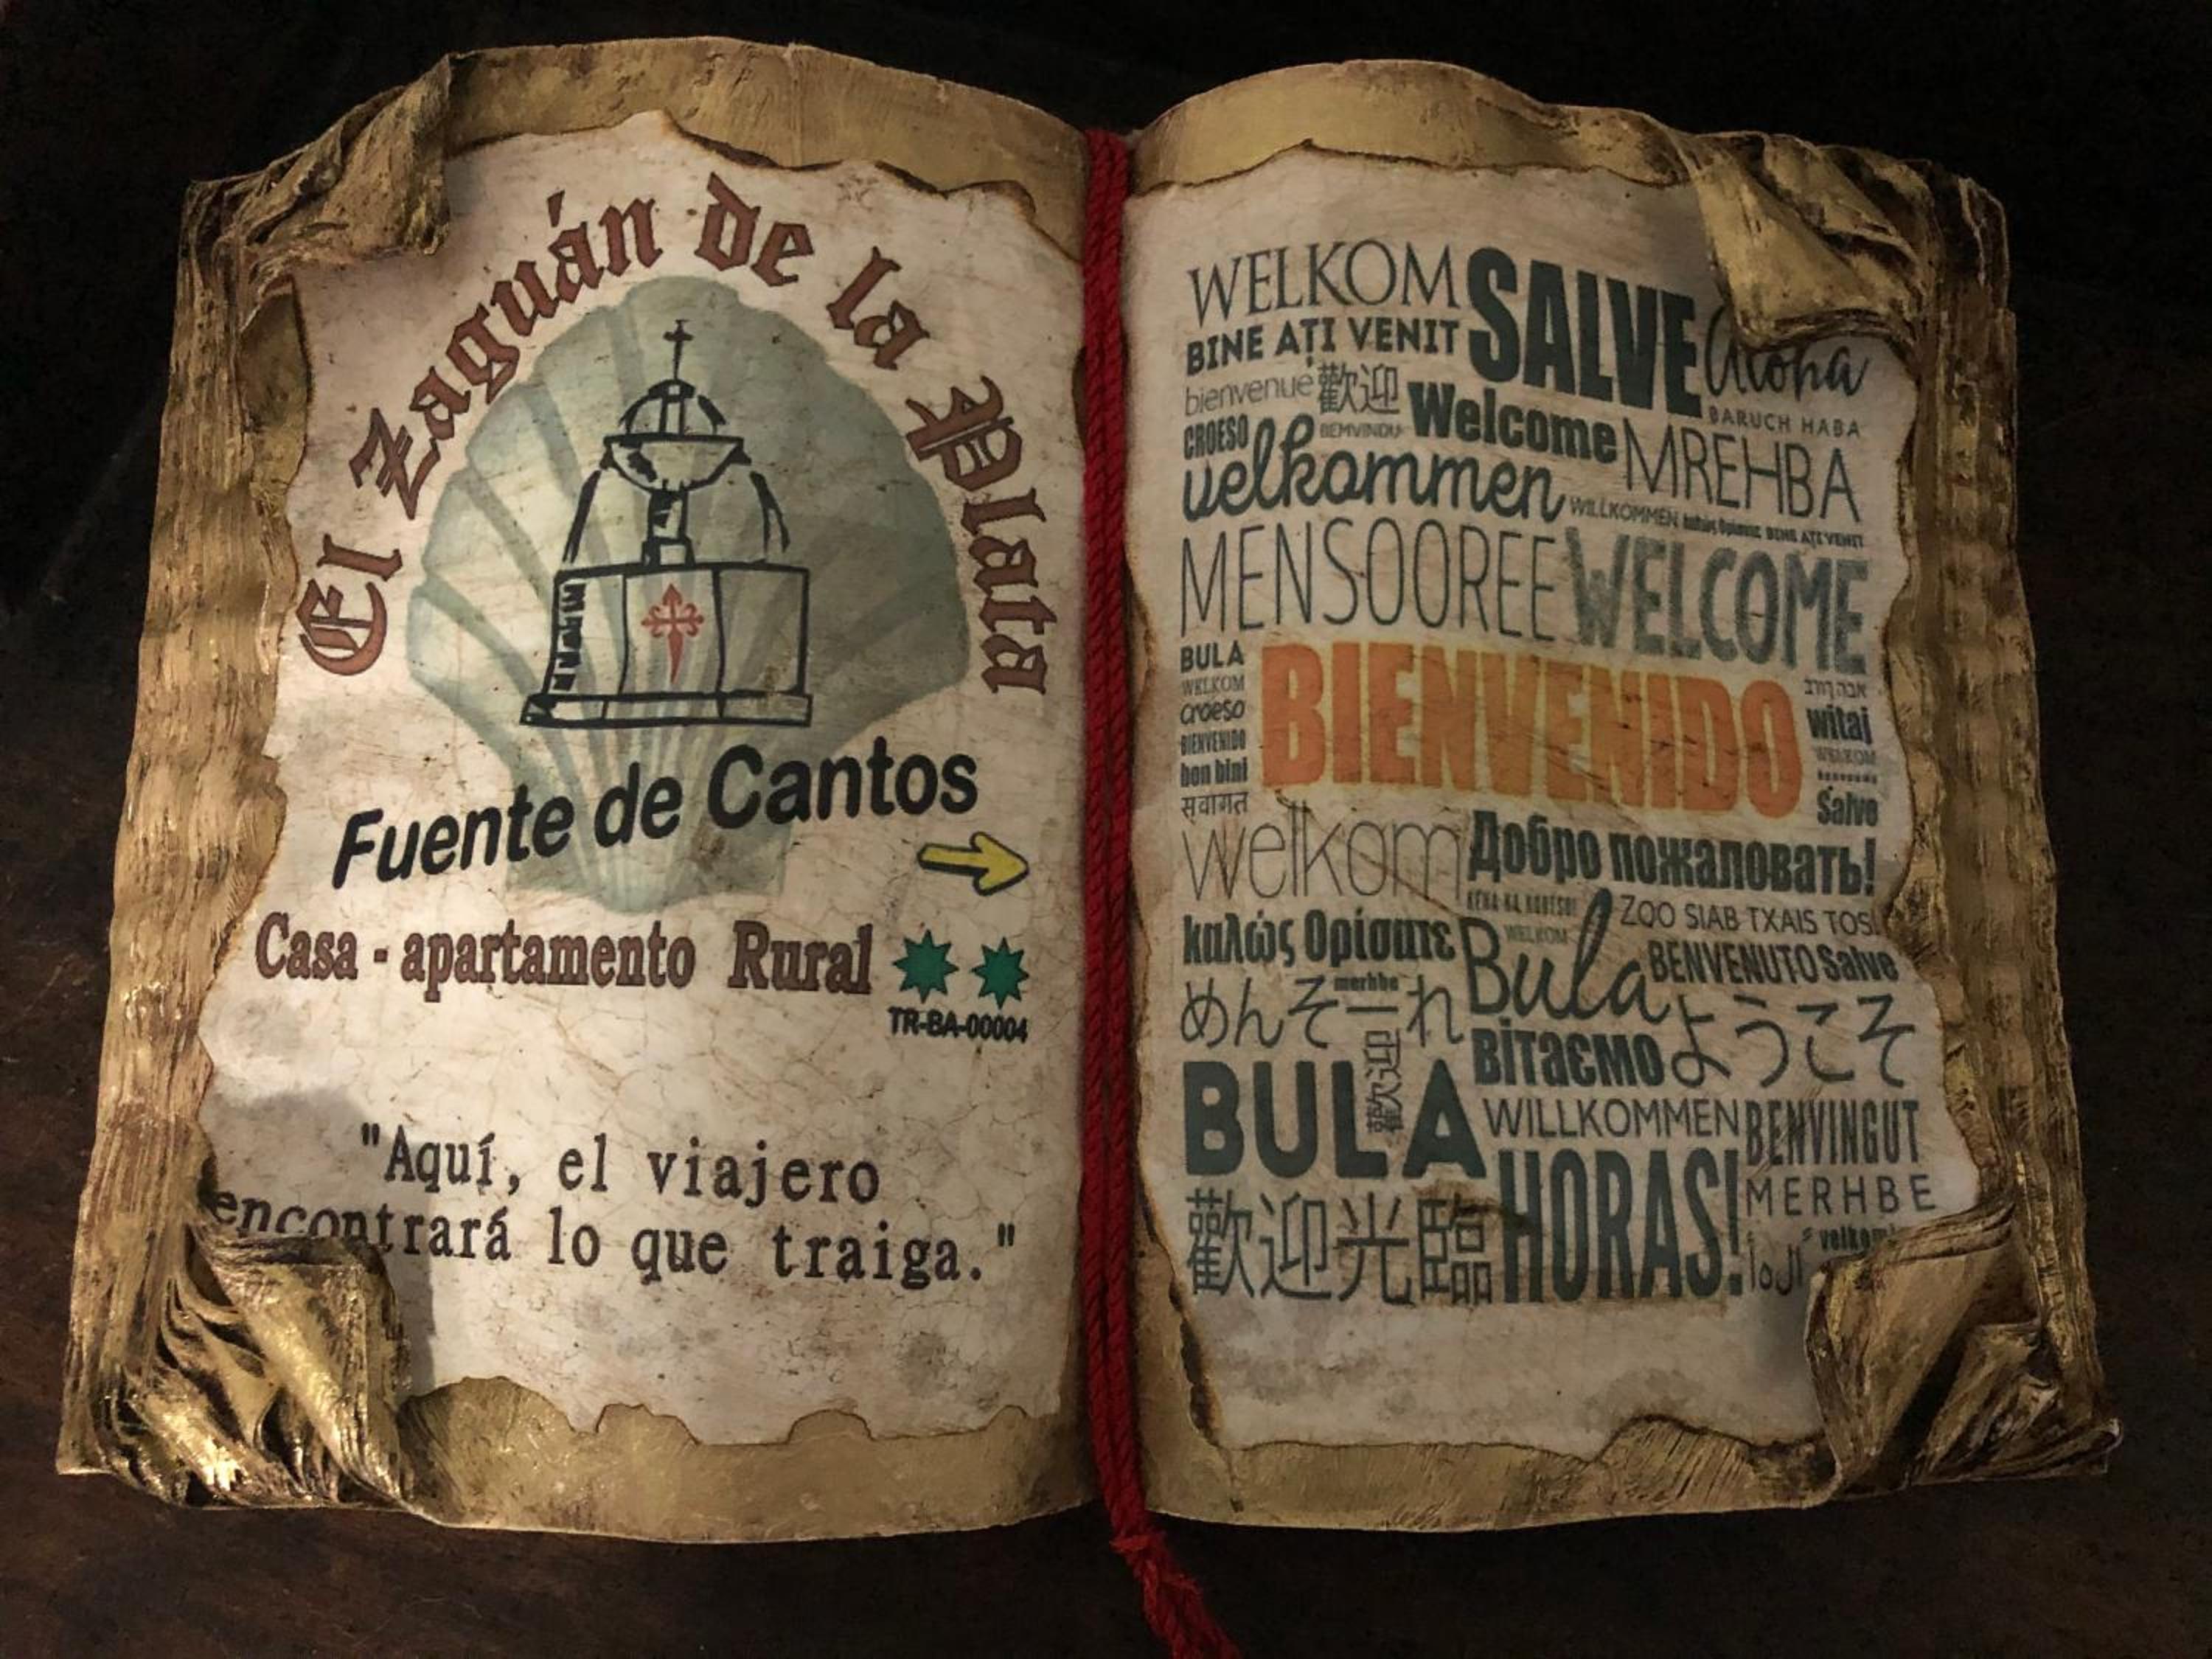 El Zaguán de la Plata
Fuente de Cantos
Casa - apartamento Rural
TR-BA-00004
"Aquí, el viajero
encontrará lo que traiga."
WELKOM SALVE Aloha
BINE AȚI VENIT
bienvenue 歡迎 Welcome BARUCH HABA
CROESO BEMVINDU MREHBA
velkommen WILLKOMMEN BINE AȚI VENIT
MENSOOREE WELCOME
BULA
WELKOM
croeso
BIENVENIDO
bon bini
स्वागत
BIENVENIDO
witaj
WELKOM
Salve
welkom Добро пожаловать!
ZOO SIAB TXAIS TOS!
καλώς Ορίσατε WELKOM Bula BENVENUTO Salve
merhba
めんそーれ ようこそ
歡迎 Вітаємо
BULA WILLKOMMEN BENVINGUT
歡迎光臨 HORAS! MERHBE